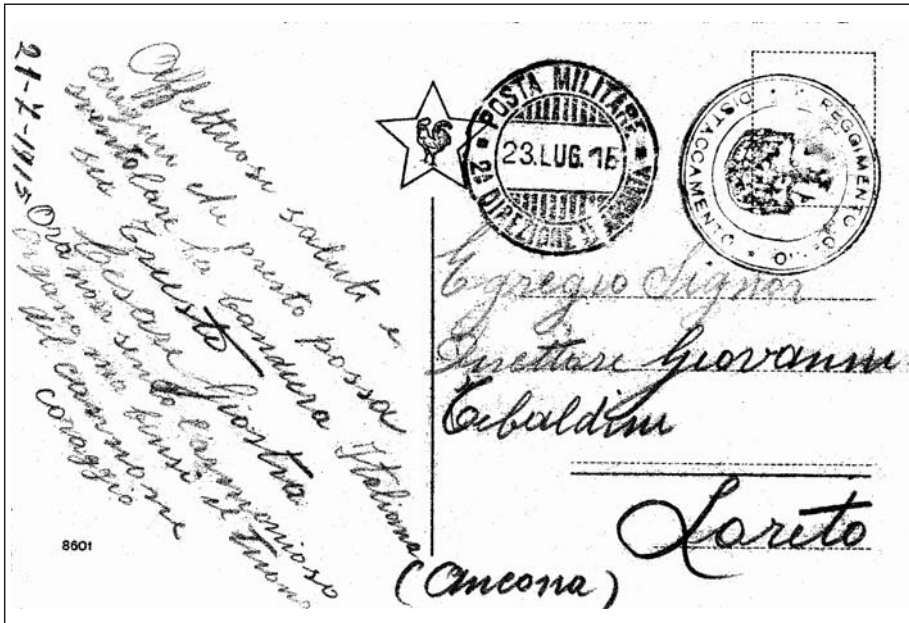 21-7-1915
Affettuosi saluti e
auguri che presto possa
sventolare la bandiera Italiana
su Trieste
Cesare Giostra
Ora non sento l'armonioso
organo ma bensì il tuono
del cannone
coraggio
8601
POSTA MILITARE
23.LUG.15
2ª DIREZIONE
REGGIMENTO
DISTACCAMENTO
Egregio Signor
Direttore Giovanni
Tebaldini
Loreto
(Ancona)